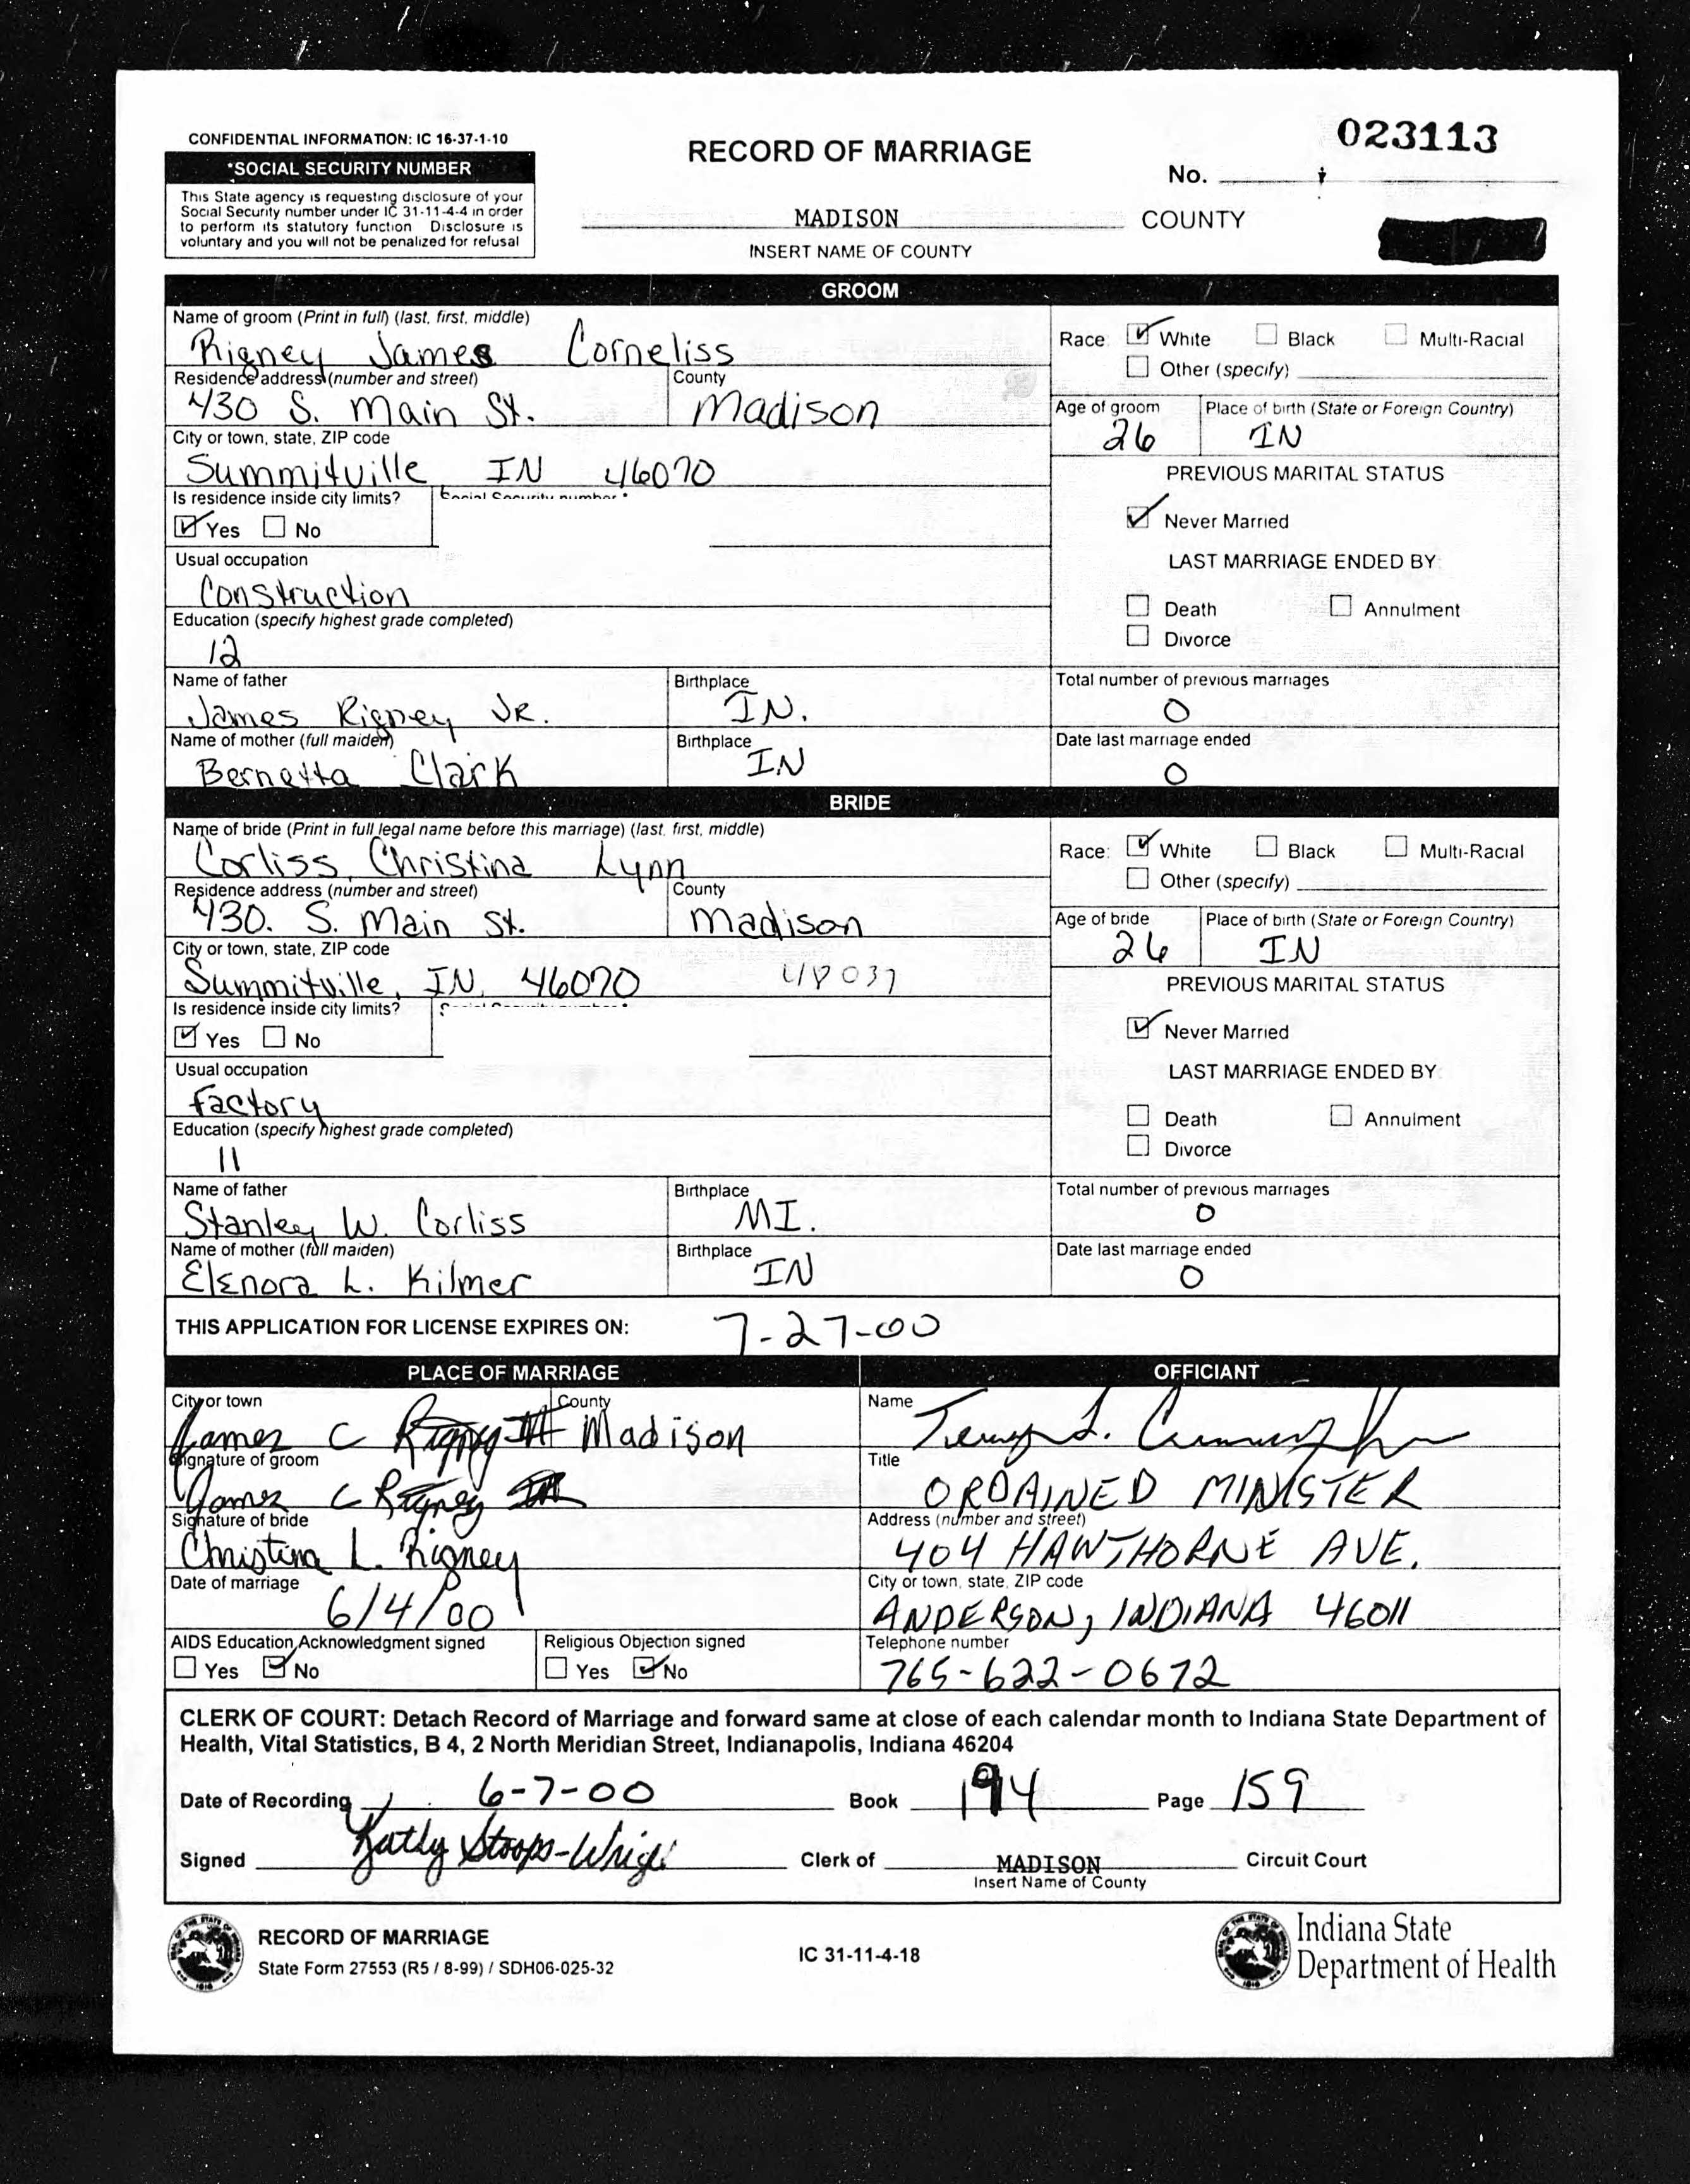 CONFIDENTIAL INFORMATION: IC 16-37-1-10
*SOCIAL SECURITY NUMBER
This State agency is requesting disclosure of your
Social Security number under IC 31-11-4-4 in order
to perform its statutory function Disclosure is
voluntary and you will not be penalized for refusal
RECORD OF MARRIAGE
MADISON COUNTY
INSERT NAME OF COUNTY
023113
No.
GROOM
Name of groom (Print in full) (last, first, middle)
Rigney James Corneliss
Race: White Black Multi-Racial
Other (specify)
Residence address (number and street) County
430 S. Main St. Madison
Age of groom Place of birth (State or Foreign Country)
26 IN
City or town, state, ZIP code
Summitville, IN 46070
PREVIOUS MARITAL STATUS
Is residence inside city limits? Social Security number *
Yes No
Never Married
Usual occupation
Construction
LAST MARRIAGE ENDED BY:
Death Annulment
Divorce
Education (specify highest grade completed)
12
Name of father Birthplace Total number of previous marriages
James Rigney JR. IN. 0
Name of mother (full maiden) Birthplace Date last marriage ended
Bernetta Clark IN 0
BRIDE
Name of bride (Print in full legal name before this marriage) (last, first, middle)
Corliss, Christina Lynn
Race: White Black Multi-Racial
Other (specify)
Residence address (number and street) County
430. S. Main St. Madison
Age of bride Place of birth (State or Foreign Country)
26 IN
City or town, state, ZIP code
Summitville, IN, 46070 48037
PREVIOUS MARITAL STATUS
Is residence inside city limits?
Yes No
Never Married
Usual occupation
factory
LAST MARRIAGE ENDED BY:
Death Annulment
Divorce
Education (specify highest grade completed)
11
Name of father Birthplace Total number of previous marriages
Stanley W. Corliss MI. 0
Name of mother (full maiden) Birthplace Date last marriage ended
Elenora L. Kilmer IN 0
THIS APPLICATION FOR LICENSE EXPIRES ON: 7-27-00
PLACE OF MARRIAGE
City or town County
James C Rigney III Madison
Signature of groom
James C Rigney III
Signature of bride
Christina L. Rigney
Date of marriage
6/4/00
AIDS Education Acknowledgment signed Religious Objection signed
Yes No Yes No
OFFICIANT
Name
Title
ORDAINED MINISTER
Address (number and street)
404 HAWTHORNE AVE.
City or town, state, ZIP code
ANDERSON, INDIANA 46011
Telephone number
765-622-0672
CLERK OF COURT: Detach Record of Marriage and forward same at close of each calendar month to Indiana State Department of
Health, Vital Statistics, B 4, 2 North Meridian Street, Indianapolis, Indiana 46204
Date of Recording 6-7-00 Book 194 Page 159
Signed Kathy Stoops-Wright Clerk of MADISON Circuit Court
Insert Name of County
RECORD OF MARRIAGE
State Form 27553 (R5 / 8-99) / SDH06-025-32
IC 31-11-4-18
Indiana State
Department of Health